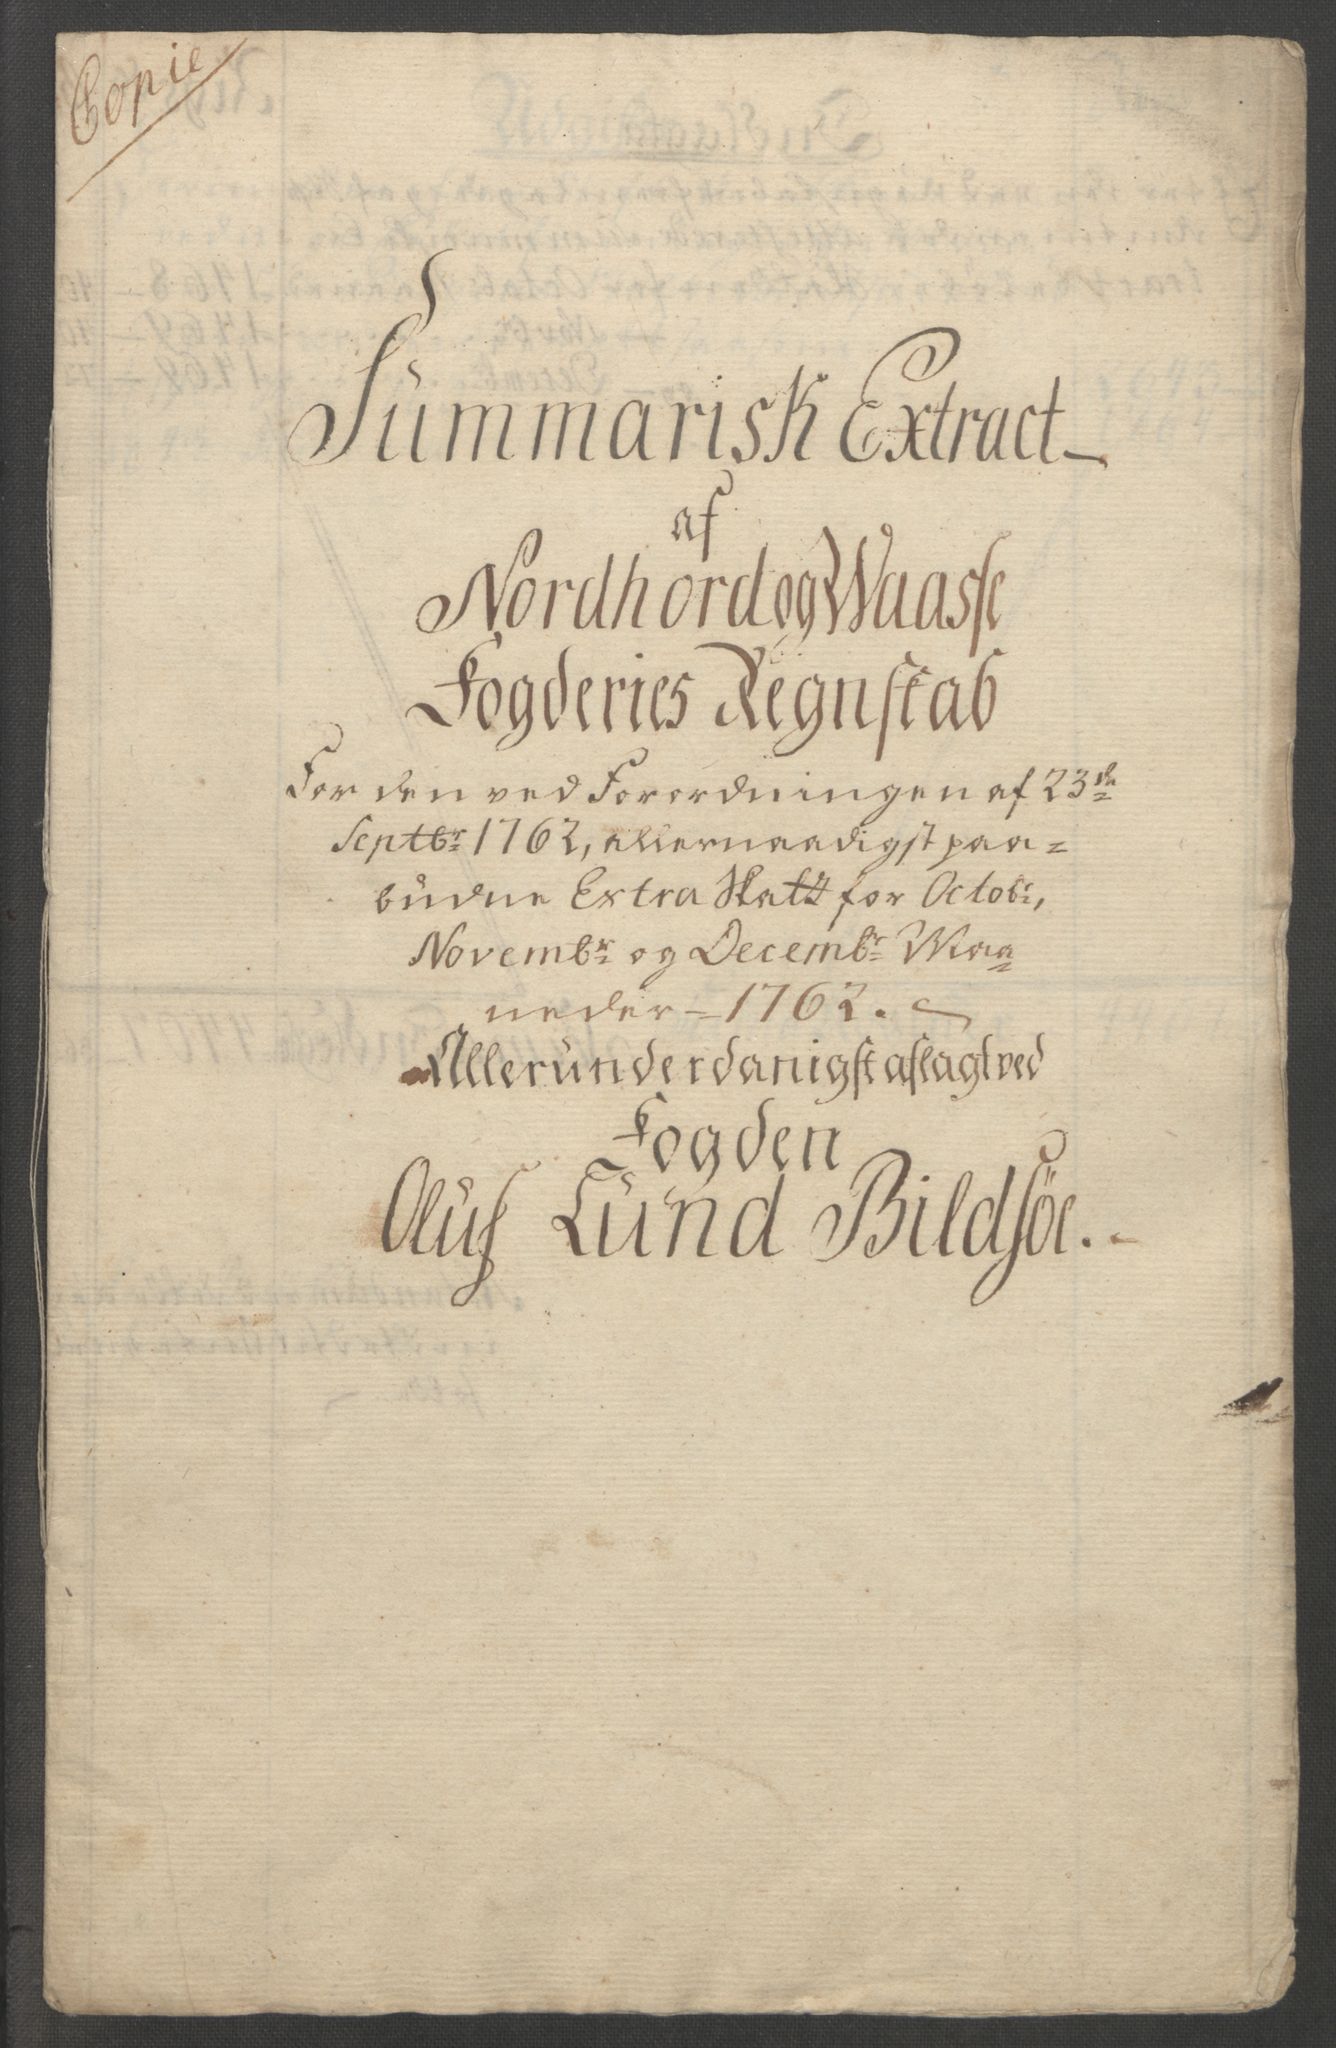 Copie
Summarisk Extract
af
Nordhord og Waasse
Fogderies Regnskab
For den ved Forordningen af 23de
Septbr 1762, allernaadigst paa=
budne Extra Skatt for Octobr,
Novembr og Decembr Maa=
neder 1762.
Allerunderdanigst aflagt ved
Fogden
Oluf Lund Bildsöe.